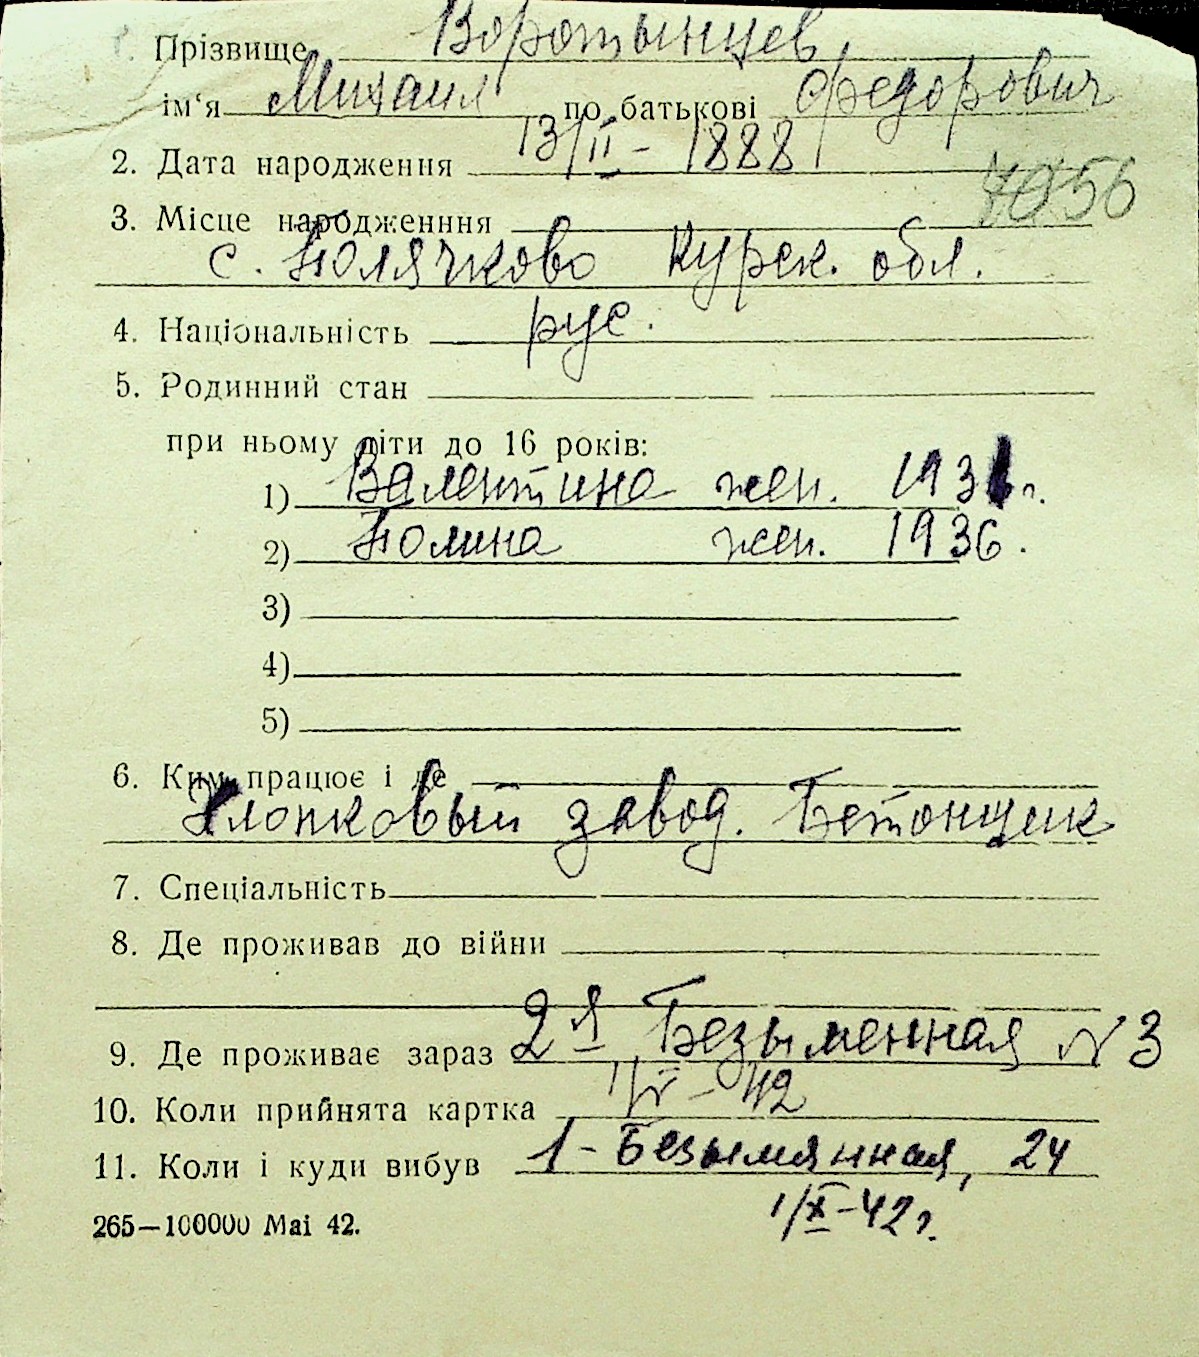 1. Прізвище Воротынцев
ім'я Михаил по батькові Федорович
2. Дата народження 13/II - 1888
7056
3. Місце народженння
с. Полячково Курск. обл.
4. Національність рус.
5. Родинний стан
при ньому діти до 16 років:
1) Валентина жен. 1931 г.
2) Полина жен. 1936.
3)
4)
5)
6. Ким працює і де
Хлопковый завод. Бетонщик
7. Спеціальність
8. Де проживав до війни
9. Де проживає зараз 2я Безыменная N 3
10. Коли прийнята картка 1/V - 42
11. Коли і куди вибув 1 - Безымянная, 24
1/X - 42 г.
265—100000 Mai 42.